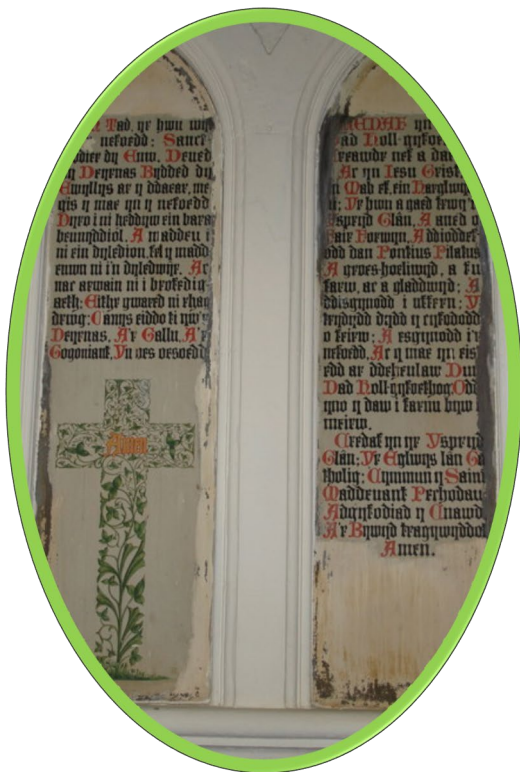 Tad, yr hwn wyt
nefoedd: Sanct-
eiddier dy Enw. Deued
dy Deyrnas Bydded dy
Ewyllys ar y ddaear, me-
gis y mae yn y nefoedd
Dyro i ni heddyw ein bara
beunyddiol. A maddeu i
ni ein dyledion, fel y madd-
euwn ni i'n dyledwyr. Ac
nac arwain ni i brofedig-
aeth; Eithr gwared ni rhag
drwg: Canys eiddo ti yw'r
Deyrnas, A'r Gallu, A'r
Gogoniant, Yn oes oesoedd
Amen
CREDAF yn
Dad Holl-gyfoe
Creawdr nef a dae
Ac yn Iesu Grist
Mab ef, ein Harglwy
ni; Yr hwn a gaed trwy'r
Yspryd Glân, A aned o
Fair Forwyn, A ddioddef
odd dan Pontius Pilatus
A groes-hoeliwyd, a fu
farw, ac a gladdwyd; A
ddisgynnodd i uffern; Y
trydydd dydd y cyfododd
o feirw; A esgynnodd i'r
nefoedd, Ac y mae yn eis
edd ar ddeheulaw Duw
Dad Holl-gyfoethog; Odd
yno y daw i farnu byw
meirw.
Credaf yn yr Yspryd
Glân; Yr Eglwys lân Ga
tholig; Cymmun y Saint
Maddeuant Pechodau
Adgyfodiad y Cnawd
A'r Bywyd tragywyddol
Amen.